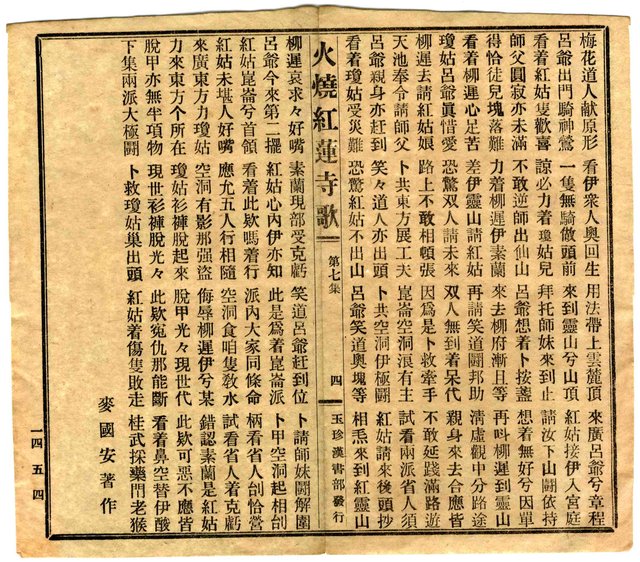 梅花道人献原形 看伊衆人與回生 用法帶上雲麓頂 來廣呂爺兮章程
呂爺出門騎神鶯 一隻無騎做頭前 來到靈山兮山頂 紅姑接伊入宮庭
看着紅姑隻歡喜 諒必力着瓊姑兒 拜托師妹來到止 請汝下山鬪依持
師父圓寂亦未滿 不敢逆師出仙山 呂爺想着卜按盞 想着無好兮因單
得恰徒兒塊落難 力着柳遲伊素蘭 來去柳府漸且等 再叫柳遲到靈山
看着柳遲心足苦 差伊靈山請紅姑 再請笑道鬪邦助 淸虛觀中分路途
瓊姑呂爺眞惜愛 恐驚双人請未來 双人無到着呆代 親身來去合應皆
柳遲去請紅姑娘 路上不敢相頓張 因爲是卜救牽手 不敢延踐滿路遊
天池奉令請師父 卜共東方展工夫 崑崙空洞浪有主 試看兩派省人須
呂爺親身亦赶到 笑々道人亦出頭 卜共空洞伊極鬪 紅姑請來後頭抄
看着瓊姑受災難 恐驚紅姑不出山 呂爺笑道奥塊等 相𤆬來到紅靈山
火燒紅蓮寺歌 第七集 四 玉珍漢書部發行
柳遲哀求々好嘴 素蘭現部受克虧 笑道呂爺赶到位 卜請師妹鬪解圍
呂爺今來第二擺 紅姑心內伊亦知 此是爲着崑崙派 卜甲空洞起相刣
紅姑崑崙兮首領 看着此欵嗎着行 派內大家同條命 柄看省人刣恰營
紅姑未堪人好嘴 應允五人行相隨 空洞食咱隻敎水 試看省人着克虧
來廣東方力瓊姑 空洞有影那强盜 侮辱柳遲伊兮某 錯認素蘭是紅姑
力來東方个所在 瓊姑衫褲脫起來 脫甲光々現世代 此欵可惡不應皆
脫甲亦無半項物 現世衫褲脫光々 此欵寃仇那能斷 看着鼻空替伊酸
下集兩派大極鬪 卜救瓊姑巢出頭 紅姑着傷隻敗走 桂武採藥鬥老猴
麥國安著作
一四五四